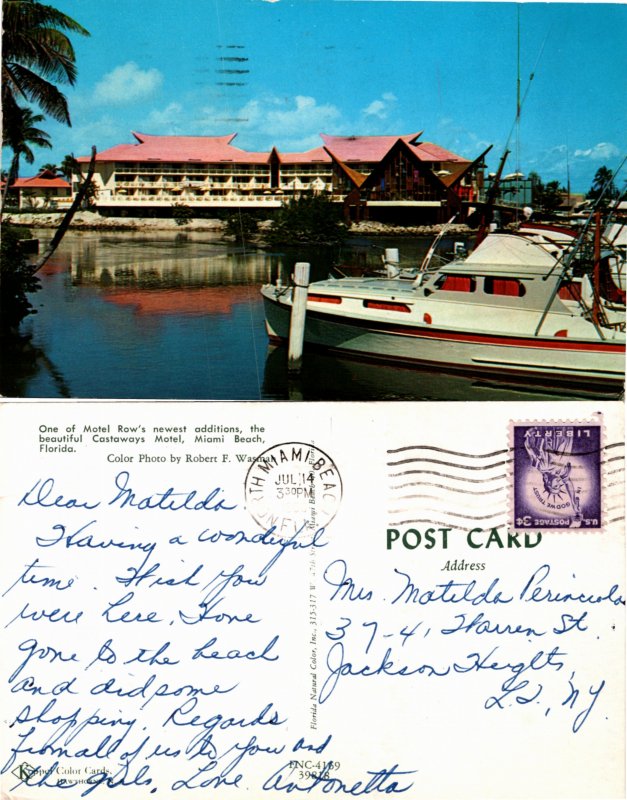 One of Motel Row's newest additions, the
beautiful Castaways Motel, Miami Beach,
Florida.
Color Photo by Robert F. Wasman
NORTH MIAMI BEACH
JUL 14
3 30 PM
LIBERTY
IN GOD WE TRUST
3¢ U.S. POSTAGE
Dear Matilda
Having a wonderful
time. Wish you
were here. Have
gone to the beach
and did some
shopping. Regards
from all of us to you and
the girls. Love Antonetta
POST CARD
Address
Mrs. Matilda Perinciola
37-41 Warren St.
Jackson Heights,
L.I., NY
Florida Natural Color, Inc., 315-317
Koppel Color Cards
HAWTHORNE
FNC-4189
39828